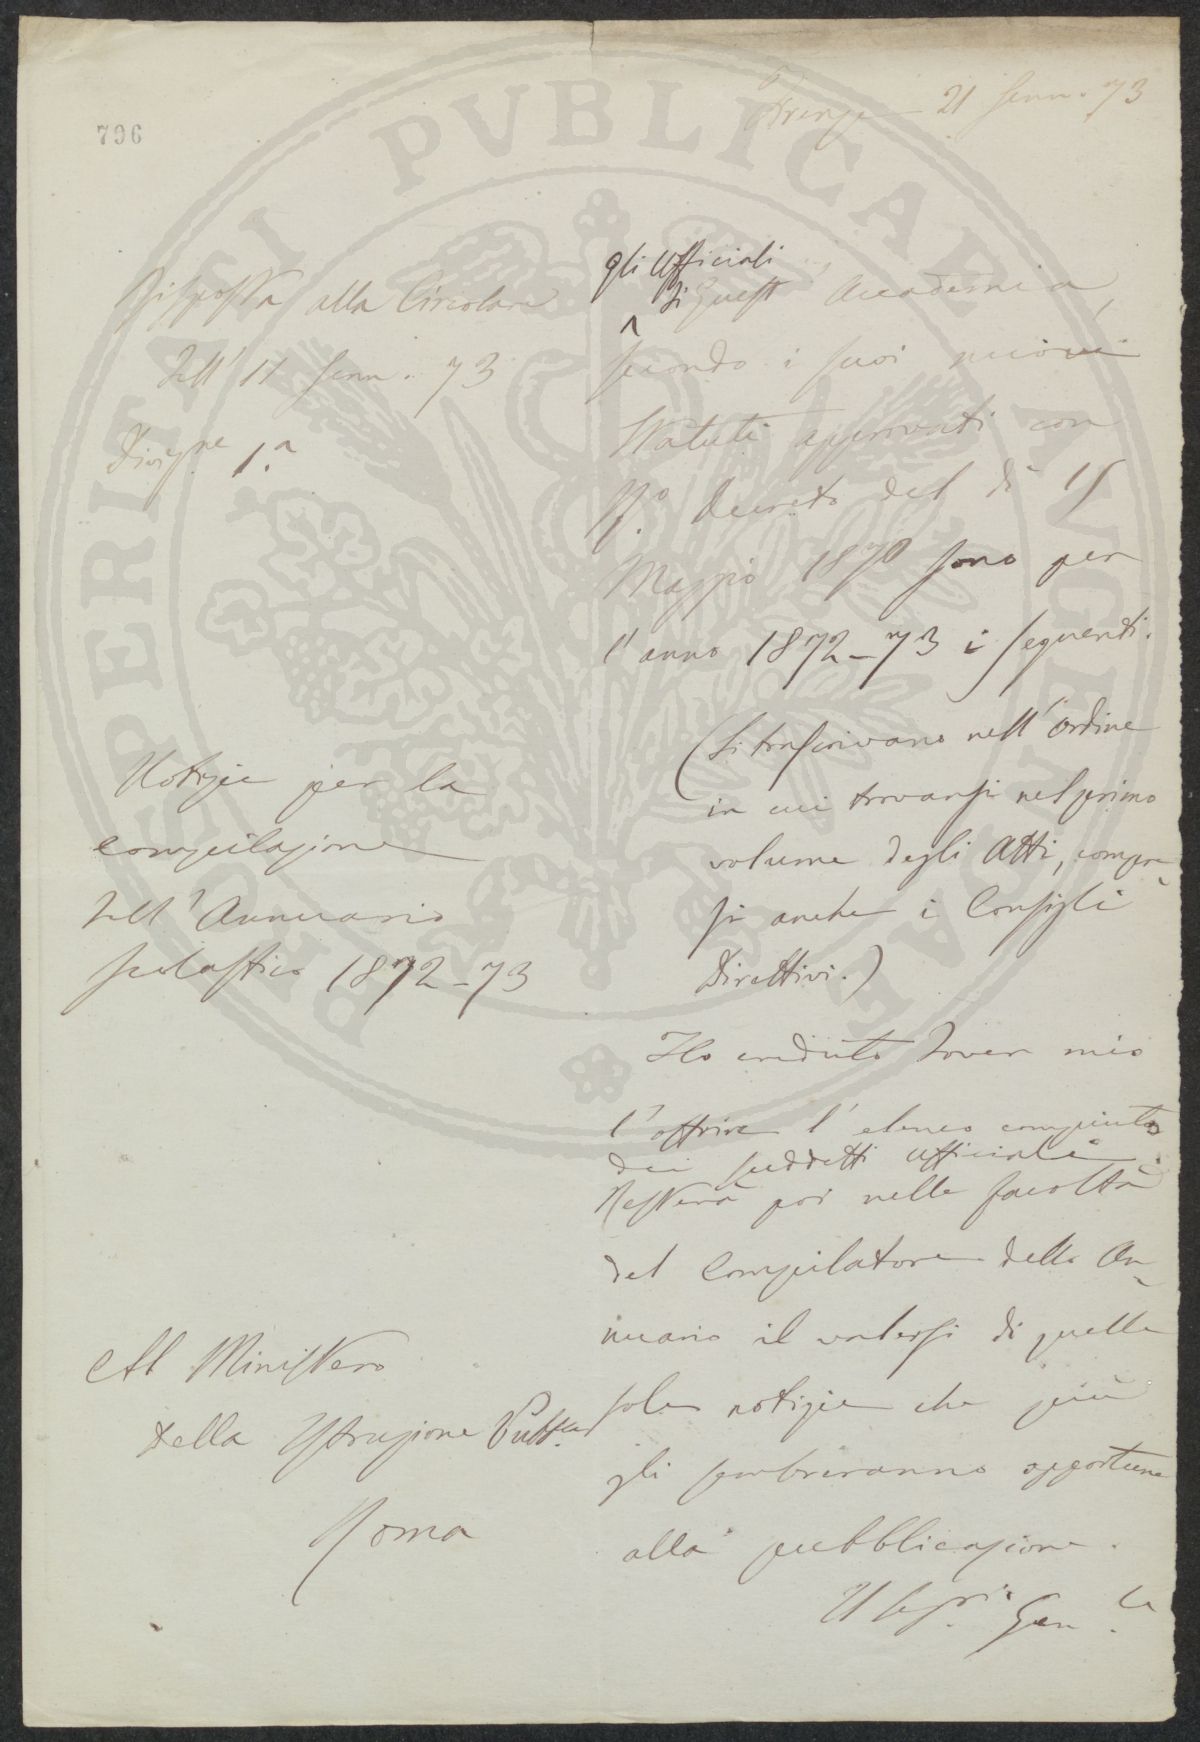 796
Firenze 21 Genn. 73
Risposta alla Circolare
dell' 11 Genn. 73
Divis.ne 1.a
Notizie per la
compilazione
dell' Annuario
scolastico 1872-73
Al Ministero
della Istruzione Pubb.ca
Roma
gli Ufficiali
di Quest' Accademia,
secondo i suoi nuovi
Statuti approvati con
R.o Decreto del dì 15
Maggio 1870 sono per
l'anno 1872-73 i seguenti.
(Si trascrivano nell' Ordine
in cui trovansi nel primo
volume degli Atti, compre-
si anche i Consigli
Direttivi.)
Ho creduto dover mio
l'offrire l'elenco compiuto
dei suddetti Ufficiali.
Resterà poi nelle facoltà
del Compilatore dello An-
nuario il valersi di quelle
sole notizie che più
gli sembreranno opportune
alla pubblicazione.
Il Seg.rio Gen.le
PROSPERITATI PVBLICAE AVGENDAE